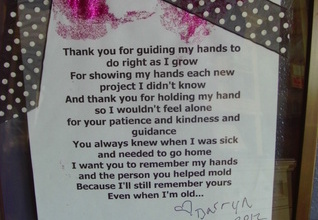 Thank you for guiding my hands to
do right as I grow
For showing my hands each new
project I didn't know
And thank you for holding my hand
so I wouldn't feel alone
for your patience and kindness and
guidance
You always knew when I was sick
and needed to go home
I want you to remember my hands
and the person you helped mold
Because I'll still remember yours
Even when I'm old...
♡Darryn
2012